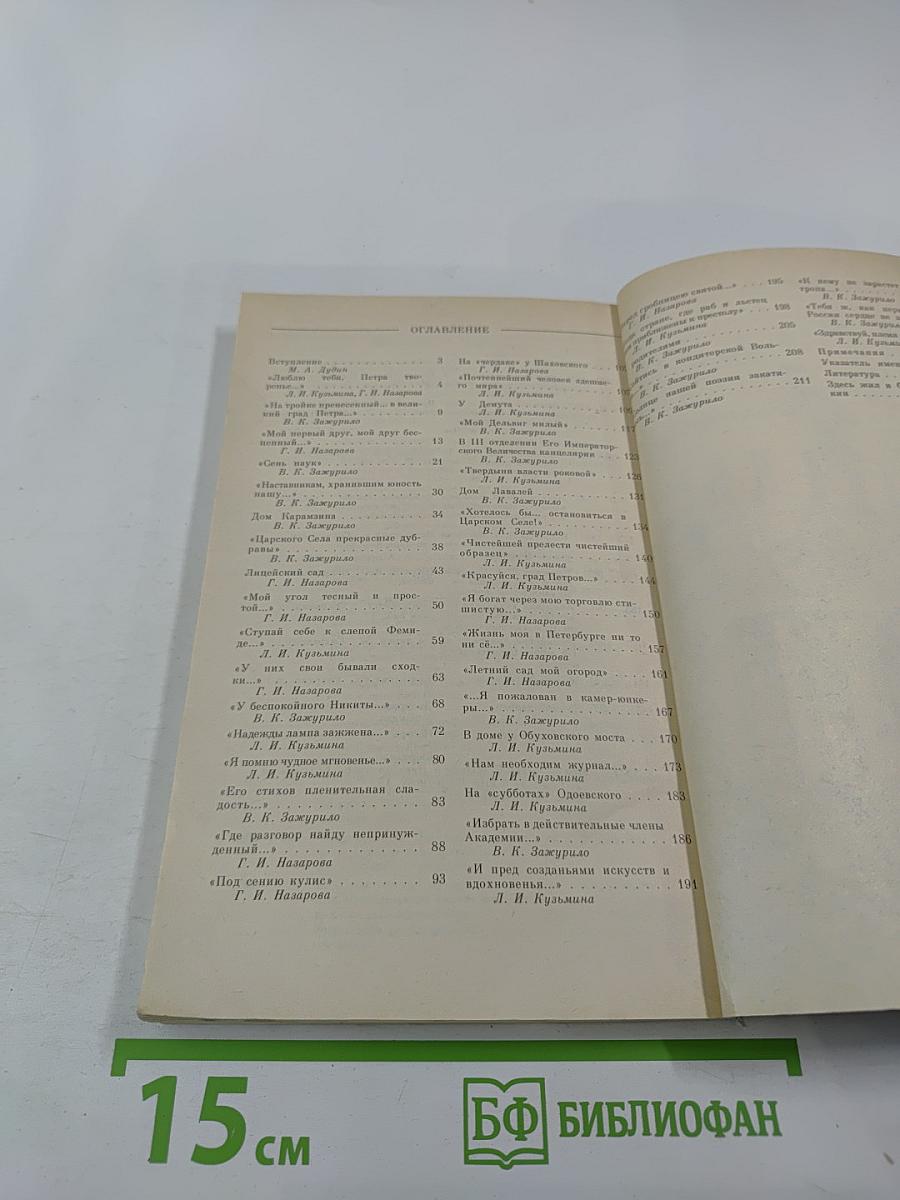 ОГЛАВЛЕНИЕ
Вступление . . . . . . . . . . . . . . 3
М. А. Дудин
«Люблю тебя, Петра тво-
ренье...» . . . . . . . . . . . . . . . 4
Л. И. Кузьмина, Г. И. Назарова
«На тройке пренесенный... в вели-
кий град Петра...» . . . . . . . . . . 9
В. К. Зажурило
«Мой первый друг, мой друг бес-
ценный...» . . . . . . . . . . . . . . 13
Г. И. Назарова
«Сень наук» . . . . . . . . . . . . . 21
В. К. Зажурило
«Наставникам, хранившим юность
нашу...» . . . . . . . . . . . . . . . 30
В. К. Зажурило
Дом Карамзина . . . . . . . . . . . 34
В. К. Зажурило
«Царского Села прекрасные дуб-
равы» . . . . . . . . . . . . . . . . 38
В. К. Зажурило
Лицейский сад . . . . . . . . . . . 43
Г. И. Назарова
«Мой угол тесный и прос-
той...» . . . . . . . . . . . . . . . . 50
Г. И. Назарова
«Ступай себе к слепой Феми-
де...» . . . . . . . . . . . . . . . . 59
Л. И. Кузьмина
«У них свои бывали сход-
ки...» . . . . . . . . . . . . . . . . 63
Г. И. Назарова
«У беспокойного Никиты...» . . . 68
В. К. Зажурило
«Надежды лампа зажжена...» . . . 72
Л. И. Кузьмина
«Я помню чудное мгновенье...» . . . 80
Л. И. Кузьмина
«Его стихов пленительная сла-
дость...» . . . . . . . . . . . . . . 83
В. К. Зажурило
«Где разговор найду непринуж-
денный...» . . . . . . . . . . . . . 88
Г. И. Назарова
«Под сению кулис» . . . . . . . . 93
Г. И. Назарова
На «чердаке» у Шаховского . . . .
Г. И. Назарова
«Почтеннейший человек здешне-
го мира» . . . . . . . . . . . . . .
Л. И. Кузьмина
У Демута . . . . . . . . . . . . .
Л. И. Кузьмина
«Мой Дельвиг милый» . . . . . . 117
В. К. Зажурило
В III отделении Его Император-
ского Величества канцелярии . . . 123
В. К. Зажурило
«Твердыня власти роковой» . . . 126
Л. И. Кузьмина
Дом Лавалей . . . . . . . . . . . 131
В. К. Зажурило
«Хотелось бы... остановиться в
Царском Селе!» . . . . . . . . . . 134
В. К. Зажурило
«Чистейшей прелести чистейший
образец» . . . . . . . . . . . . . 140
Л. И. Кузьмина
«Красуйся, град Петров...» . . . . 144
Л. И. Кузьмина
«Я богат через мою торговлю сти-
шистую...» . . . . . . . . . . . . 150
Г. И. Назарова
«Жизнь моя в Петербурге ни то
ни сё...» . . . . . . . . . . . . . . 157
Г. И. Назарова
«Летний сад мой огород» . . . . 161
Г. И. Назарова
«...Я пожалован в камер-юнке-
ры...» . . . . . . . . . . . . . . . 167
В. К. Зажурило
В доме у Обуховского моста . . . 170
Л. И. Кузьмина
«Нам необходим журнал...» . . . 173
Л. И. Кузьмина
На «субботах» Одоевского . . . . 183
Л. И. Кузьмина
«Избрать в действительные члены
Академии...» . . . . . . . . . . . 186
В. К. Зажурило
«И пред созданьями искусств и
вдохновенья...» . . . . . . . . . . 191
Л. И. Кузьмина
гробницею святой...» . . . 195
И. Назарова
стране, где раб и льстец
приближены к престолу» . . . 198
Л. И. Кузьмина
родителями . . . . . . . . . 205
В. К. Зажурило
в кондитерской Воль-
. . . . . . . . . . . . . . . 208
В. К. Зажурило
нашей поэзии закати-
. . . . . . . . . . . . . . . 211
В. К. Зажурило
«К нему не зарастет
тропа...» . . . . . . .
В. К. Зажурило
«Тебя ж, как
России сердце не
В. К. Зажурило
«Здравствуй, племя
Л. И. Кузьм
Примечания . . .
Указатель имен
Литература . . .
Здесь жил и б
кин . . . . . . .
15 см
БФ БИБЛИОФАН